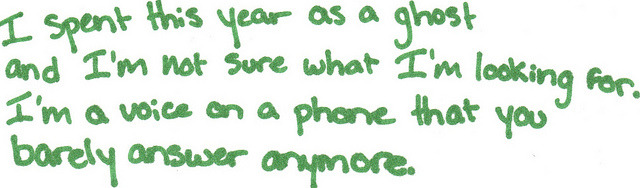 I spent this year as a ghost
and I'm not sure what I'm looking for.
I'm a voice on a phone that you
barely answer anymore.